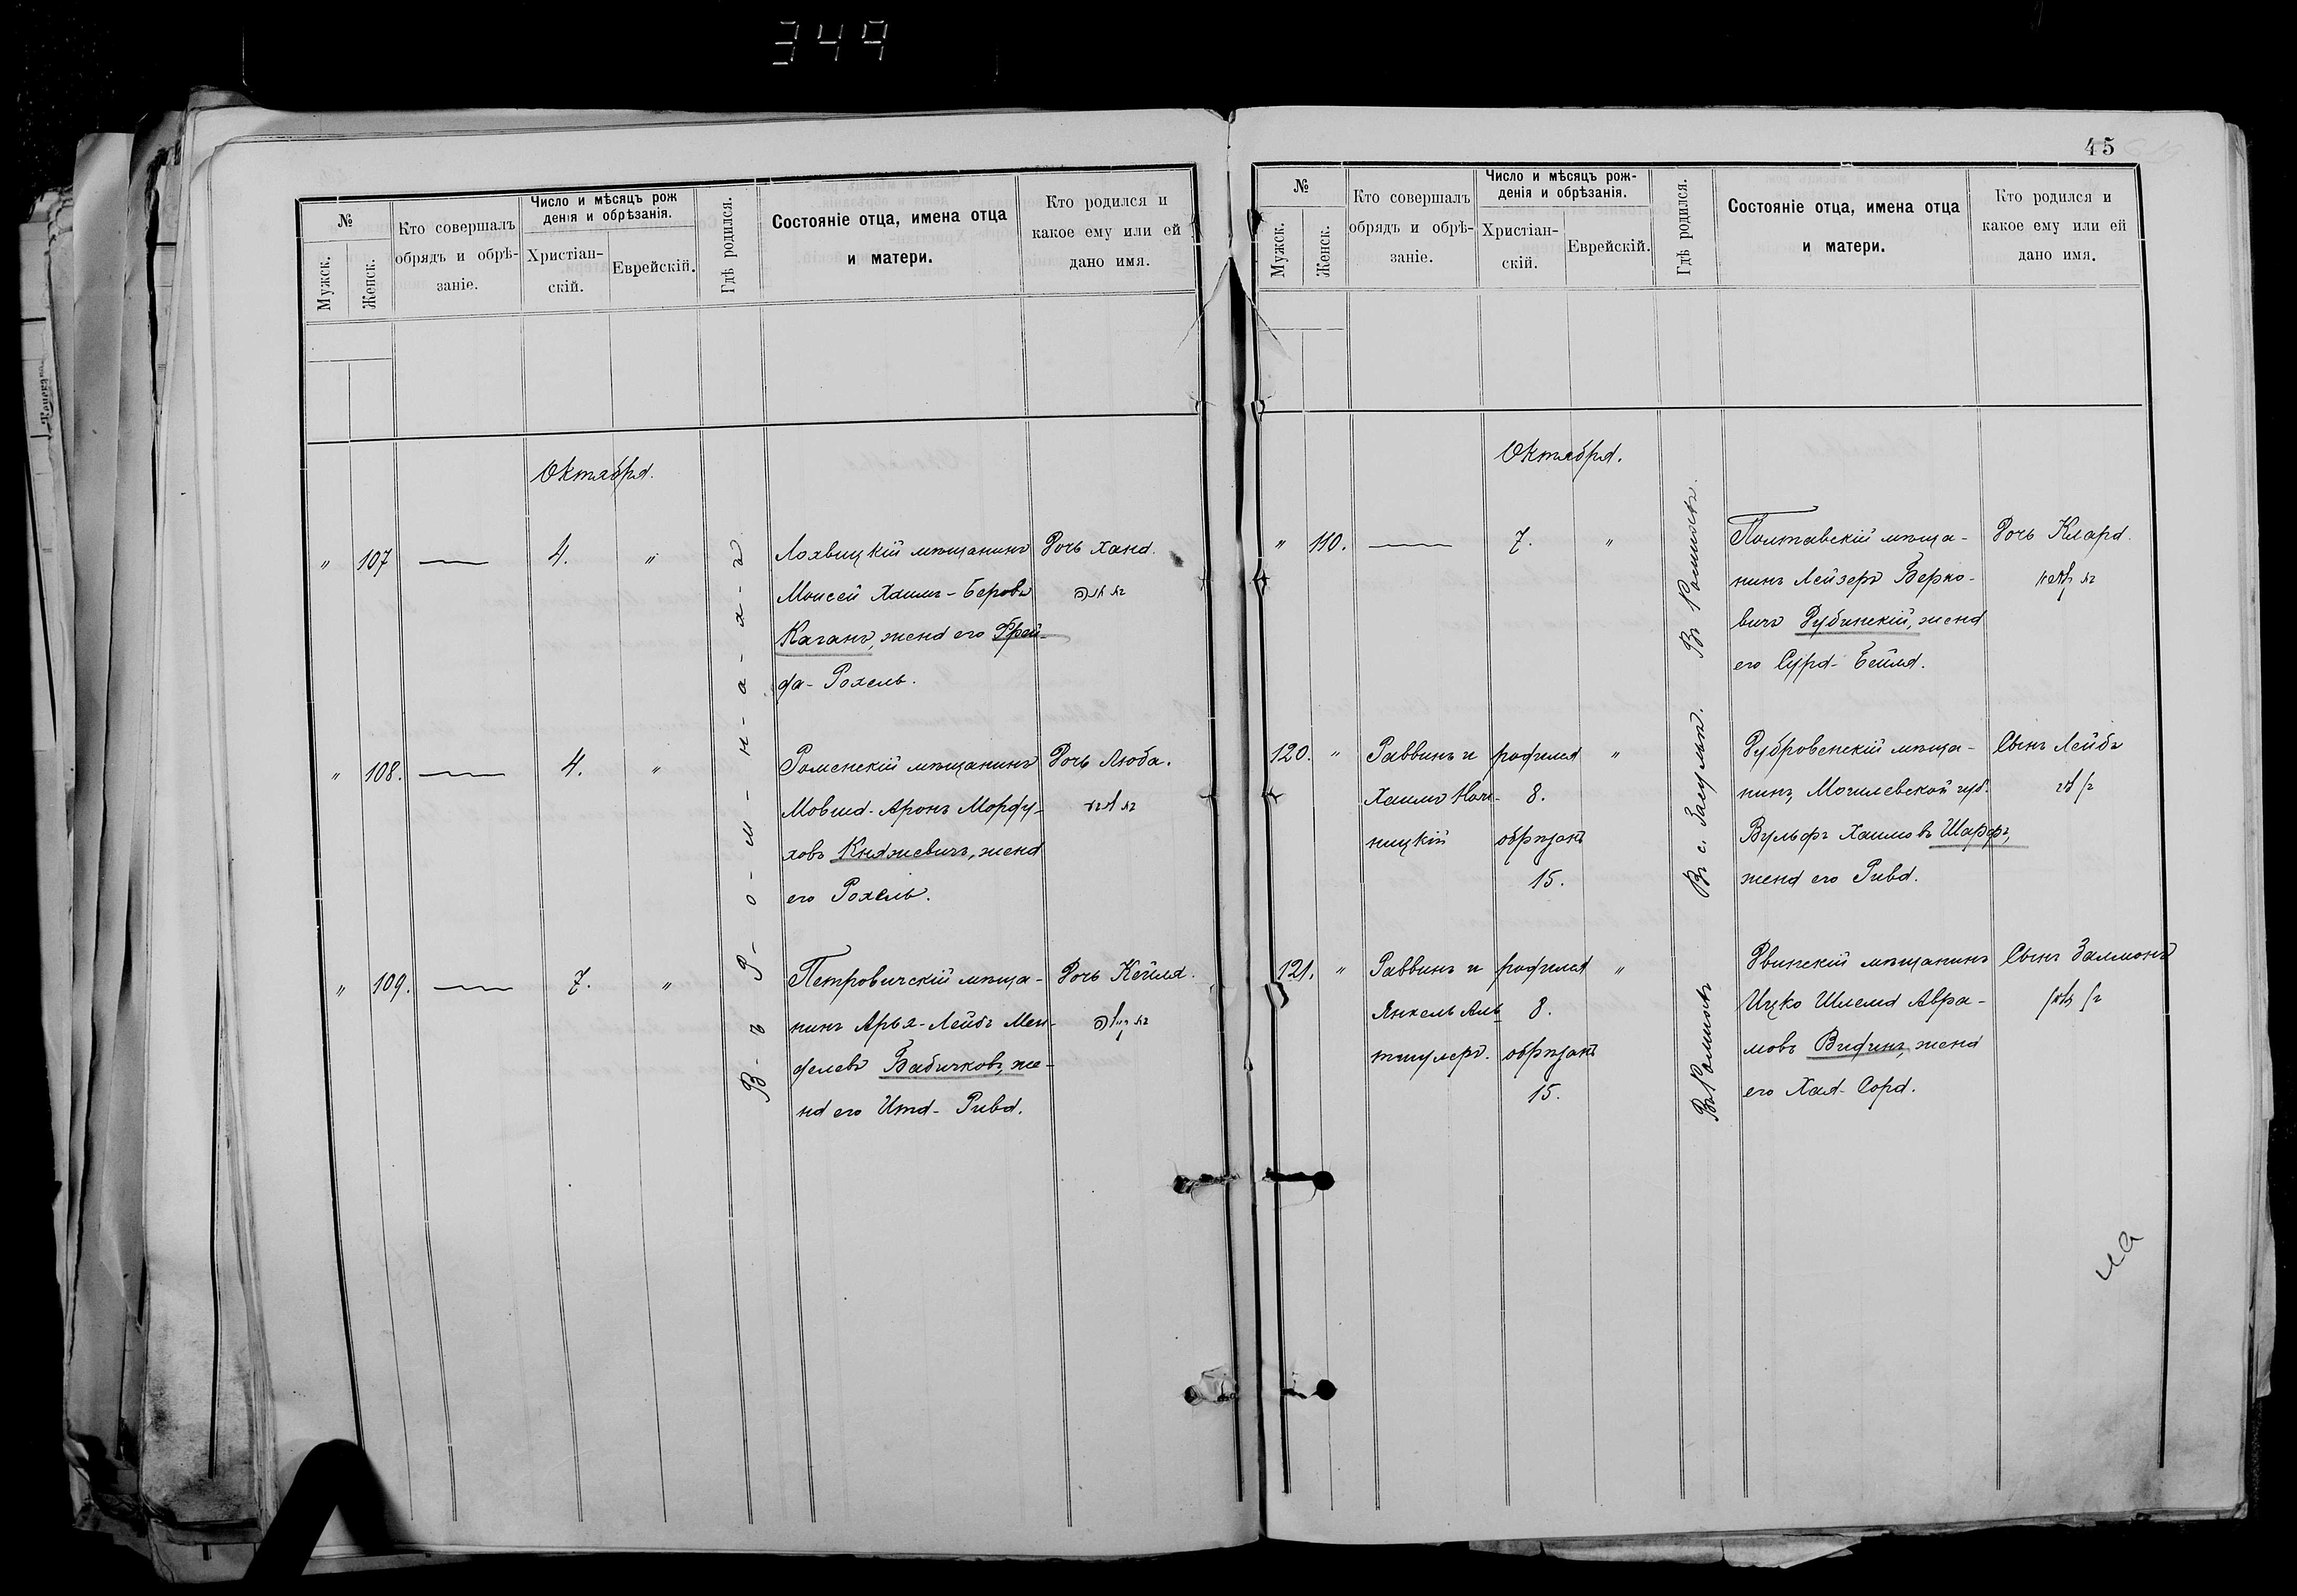 349
№
Мужск.
Женск.
Кто совершалъ
обрядъ и обрѣ-
заніе.
Число и мѣсяцъ рож
денія и обрѣзанія.
Христіан-
скій.
Еврейскій.
Гдѣ родился.
Состояніе отца, имена отца
и матери.
Кто родился и
какое ему или ей
дано имя.
Октября.
" 107 — 4. "
Лохвицкій мѣщанинъ
Моисей Хаимъ-Беровъ
Каганъ, жена его Фрей-
да-Рохель.
Дочь Хана.
בת חנה
" 108. — 4. "
Роменскій мѣщанинъ
Мовша-Аронъ Морду-
ховъ Княжевичъ, жена
его Рохель.
Дочь Люба.
" 109. — 7. "
Петровичскій мѣща-
нинъ Арья-Лейбъ Мен-
делевъ Бабичковъ, же-
на его Ита-Рива.
Дочь Кейла.
בת קיילה
В-ъ Р-о-м-н-а-х-ъ
45
№
Мужск.
Женск.
Кто совершалъ
обрядъ и обрѣ-
заніе.
Число и мѣсяцъ рож-
денія и обрѣзанія.
Христіан-
скій.
Еврейскій.
Гдѣ родился.
Состояніе отца, имена отца
и матери.
Кто родился и
какое ему или ей
дано имя.
Октября.
" 110. — 7. "
Полтавскій мѣща-
нинъ Лейзеръ Берко-
вичъ Дубинскій, жена
его Сура-Бейла.
Дочь Клара.
בת קלארא
120. " Раввинъ и родился "
Хаимъ
ницкій
8.
обрѣзанъ
15.
Въ с. Засульѣ.
Дубровенскій мѣща-
нинъ, Могилевской губ.
Вульфъ Хаимовъ Шарфъ,
жена его Рива.
Сынъ Лейбъ
121. " Раввинъ и родился "
Янкель Аль
тшулеръ.
8.
обрѣзанъ
15.
Двинскій мѣщанинъ
Ицко Шлема Абра-
мовъ Видинъ, жена
его Хая-Сора.
Сынъ Залмонъ